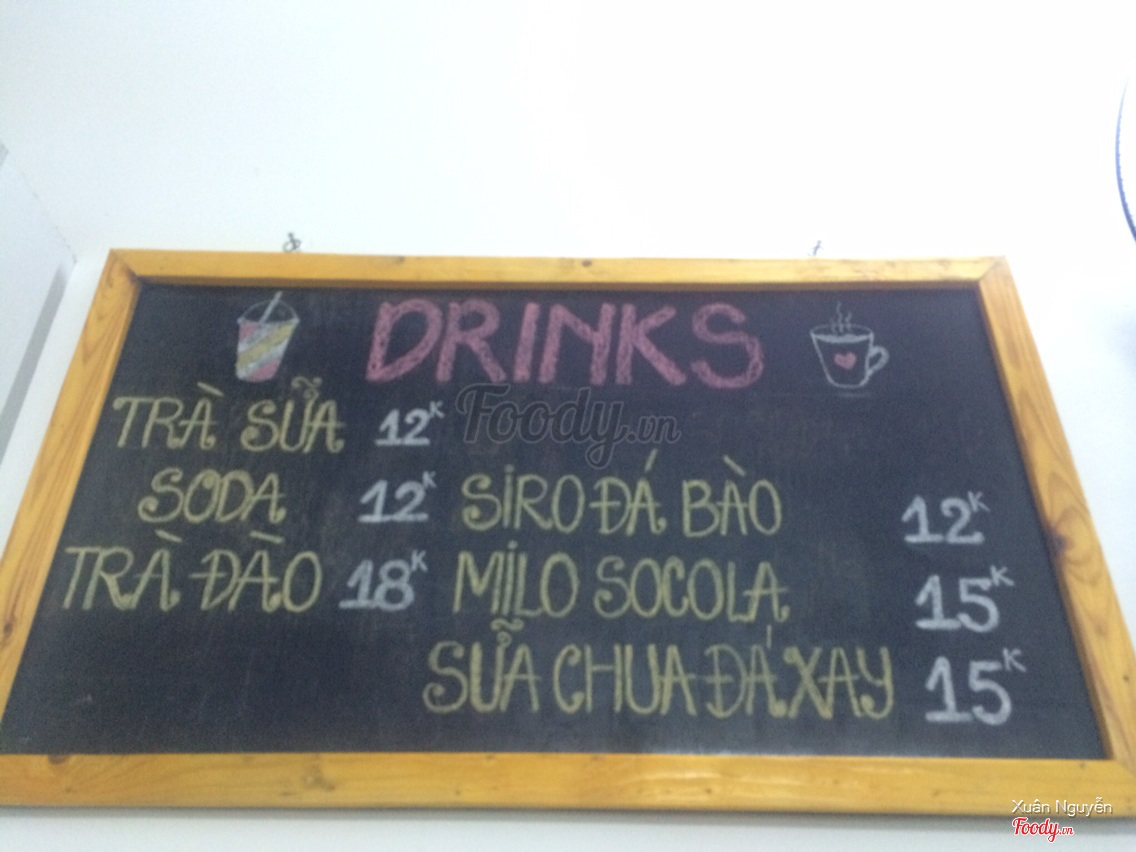 DRINKS
TRÀ SỮA 12K
SODA 12K
TRÀ ĐÀO 18K
SIRO ĐÁ BÀO 12K
MILO SOCOLA 15K
SỮA CHUA ĐÁ XAY 15K
Foody.vn
Xuân Nguyễn
Foody.vn